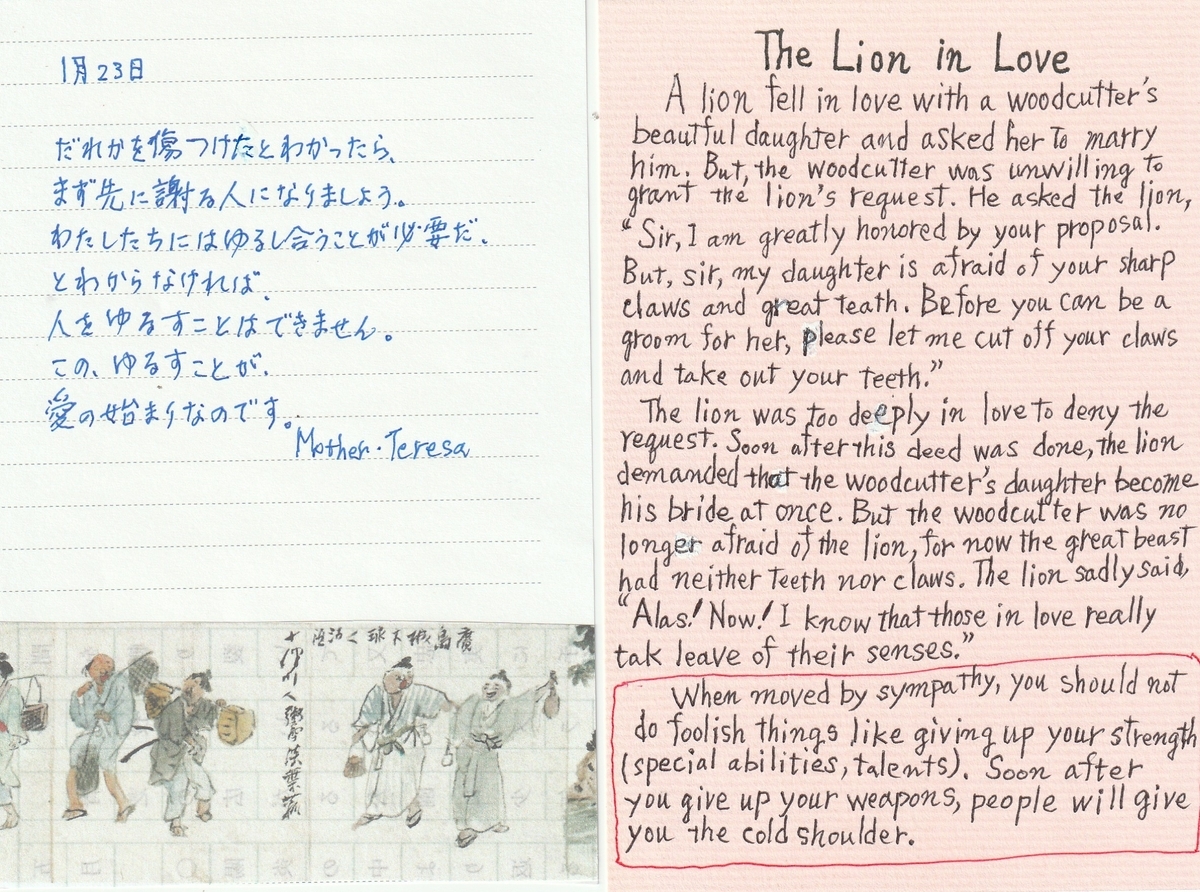 1月23日
だれかを傷つけたとわかったら、
まず先に謝る人になりましょう。
わたしたちにはゆるし合うことが必要だ、
とわからなければ、
人をゆるすことはできません。
この、ゆるすことが、
愛の始まりなのです。
Mother・Teresa
The Lion in Love
A lion fell in love with a woodcutter's
beautful daughter and asked her to marry
him. But, the woodcutter was unwilling to
grant the lion's request. He asked the lion,
"Sir, I am greatly honored by your proposal.
But, sir, my daughter is afraid of your sharp
claws and great teath. Before you can be a
groom for her, please let me cut off your claws
and take out your teeth."
The lion was too deeply in love to deny the
request. Soon after this deed was done, the lion
demanded that the woodcutter's daughter become
his bride at once. But the woodcutter was no
longer afraid of the lion, for now the great beast
had neither teeth nor claws. The lion sadly said,
"Alas! Now! I know that those in love really
tak leave of their senses."
When moved by sympathy, you should not
do foolish things like giving up your strength
(special abilities, talents). Soon after
you give up your weapons, people will give
you the cold shoulder.